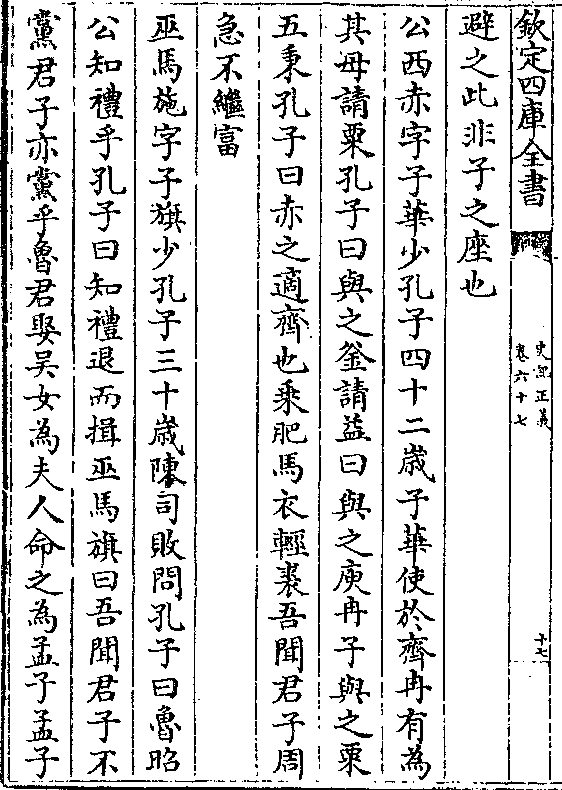 欽定四庫全書
史記正義
卷六十七
十七
避之此非子之座也
公西赤字子華少孔子四十二歲子華使於齊冉有為
其母請粟孔子曰與之釡請益曰與之庾冉子與之粟
五秉孔子曰赤之適齊也乗肥馬衣輕裘吾聞君子周
急不繼富
巫馬施字子旗少孔子三十歲陳司敗問孔子曰魯昭
公知禮乎孔子曰知禮退而揖巫馬旗曰吾聞君子不
黨君子亦黨乎魯君娶吴女為夫人命之為孟子孟子